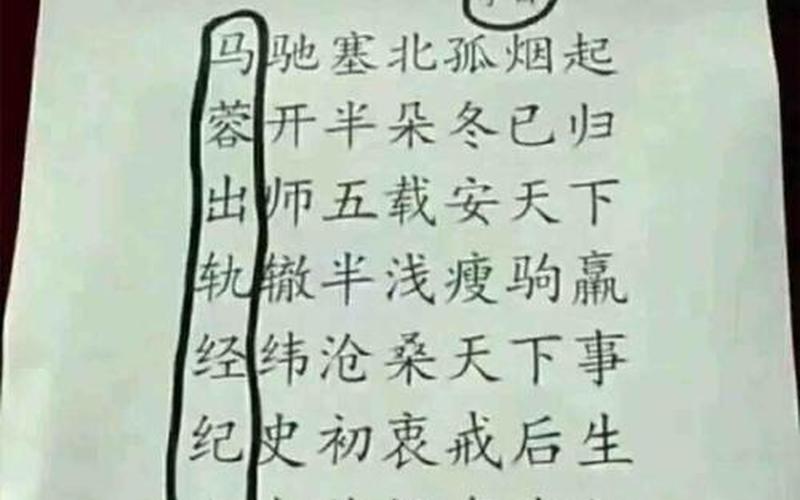 马驰塞北孤烟起
蓉开半朵冬已归
出师五载安天下
轨辙半浅瘦驹羸
经纬沧桑天下事
纪史初衷戒后生